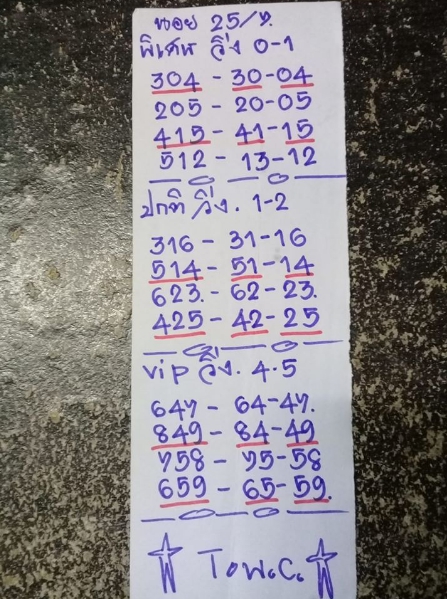 หนอย 25/7.
พิเศษ วิ่ง 0-1
304 - 30-04
205 - 20-05
415 - 41-15
512 - 13-12
ปกติ วิ่ง. 1-2
316 - 31-16
514 - 51-14
623. - 62-23.
425 - 42-25
vip วิ่ง. 4.5
647 - 64-47.
849 - 84-49
758 - 75-58
659 - 65-59.
T.W.C.